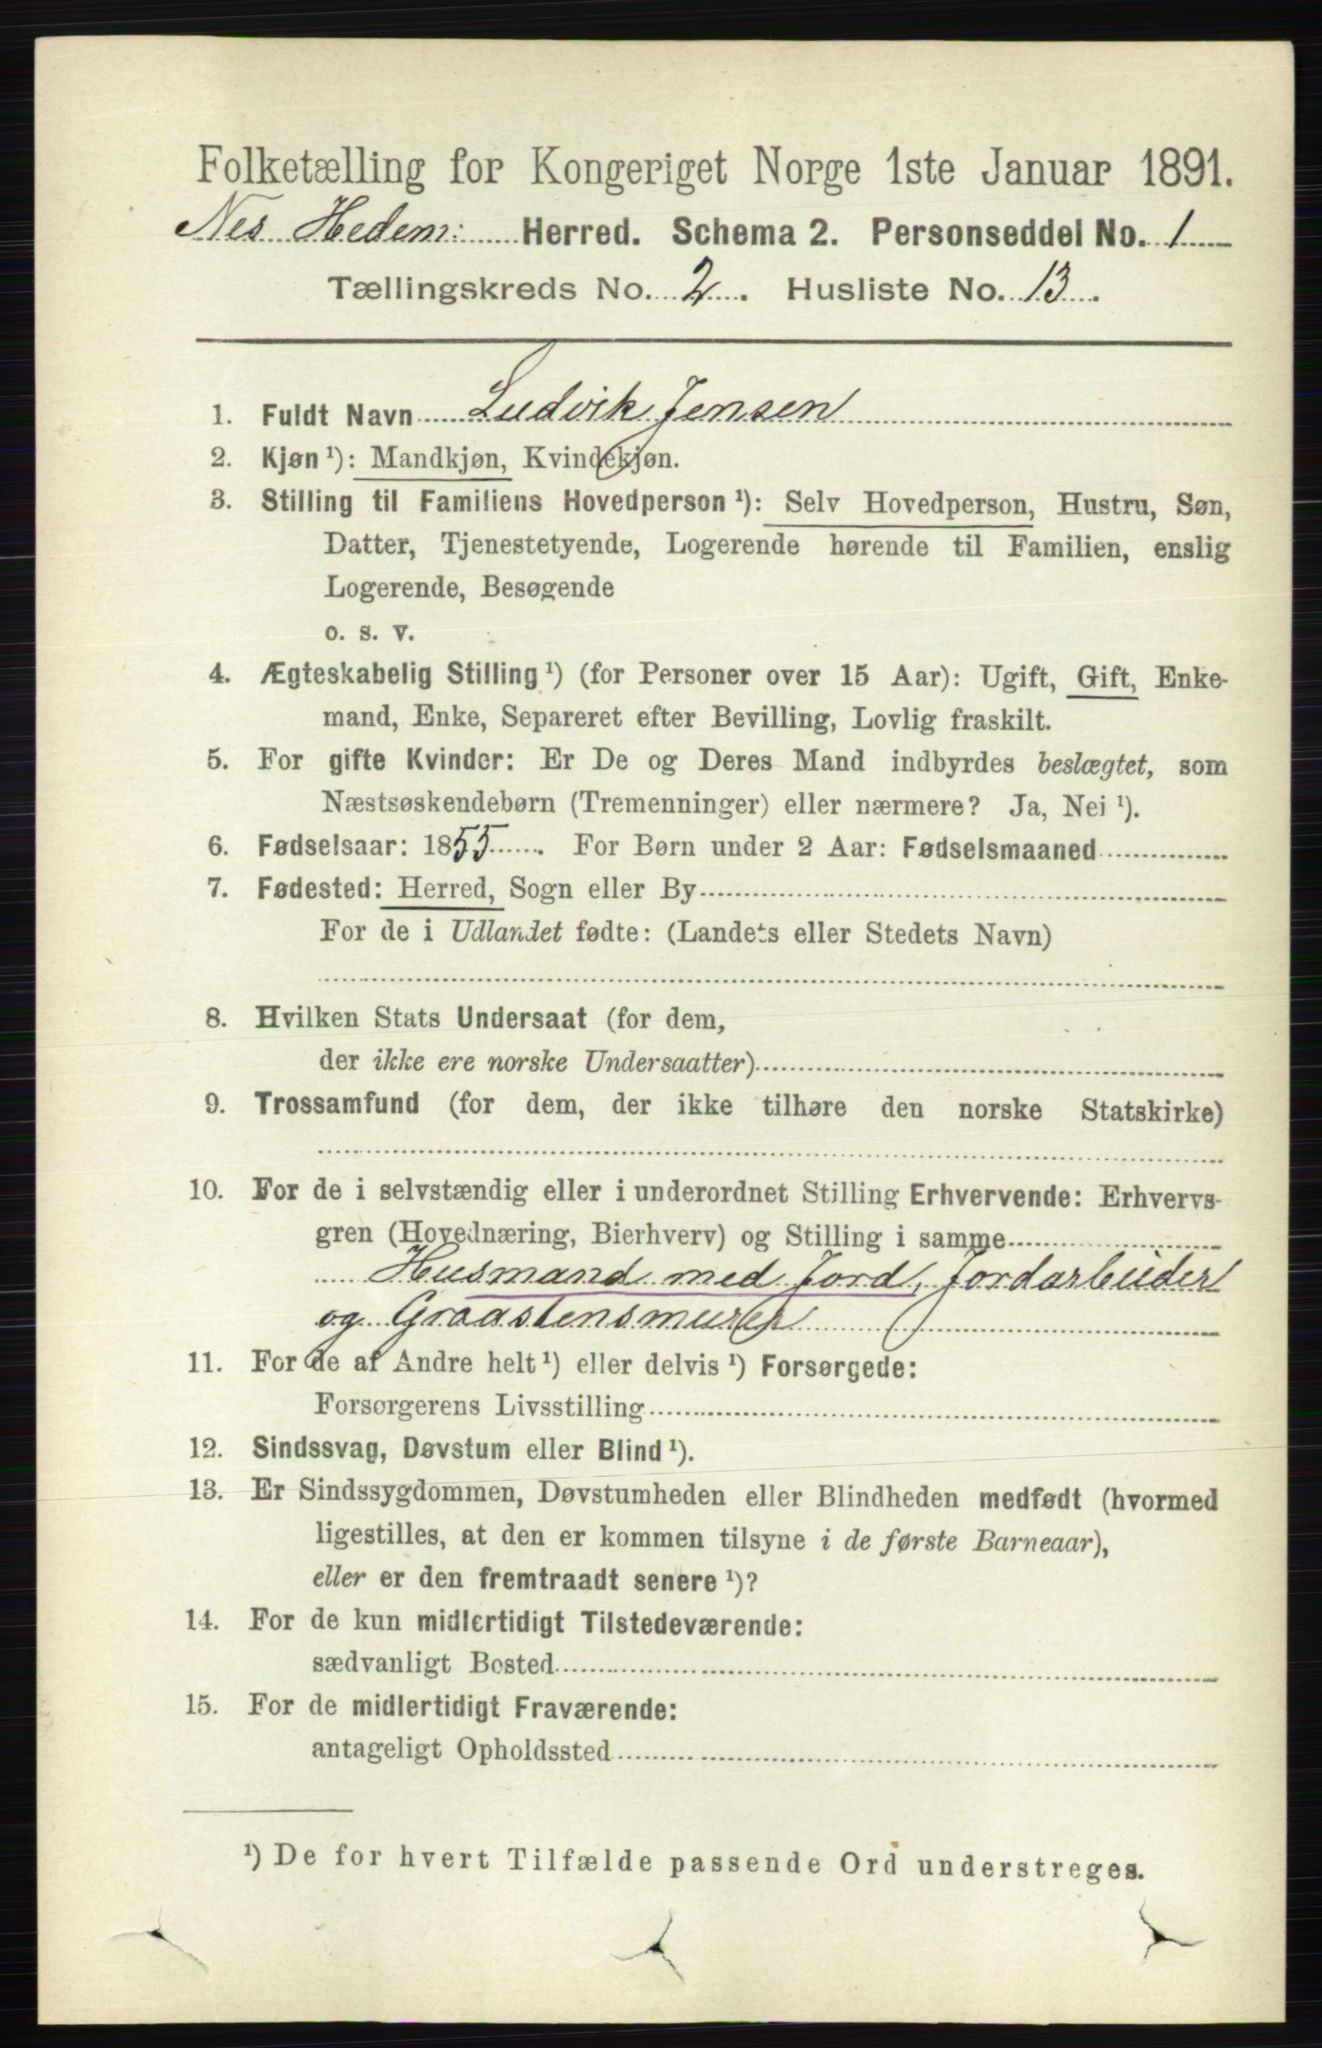 Folketælling for Kongeriget Norge 1ste Januar 1891.
Nes Hedem: Herred. Schema 2. Personseddel No. 1
Tællingskreds No. 2. Husliste No. 13.
1. Fuldt Navn Ludvik Jensen
2. Kjøn ¹): Mandkjøn, Kvindekjøn.
3. Stilling til Familiens Hovedperson ¹): Selv Hovedperson, Hustru, Søn,
Datter, Tjenestetyende, Logerende hørende til Familien, enslig
Logerende, Besøgende
o. s. v.
4. Ægteskabelig Stilling ¹) (for Personer over 15 Aar): Ugift, Gift, Enke-
mand, Enke, Separeret efter Bevilling, Lovlig fraskilt.
5. For gifte Kvinder: Er De og Deres Mand indbyrdes beslægtet, som
Næstsøskendebørn (Tremenninger) eller nærmere? Ja, Nei ¹).
6. Fødselsaar: 1855. For Børn under 2 Aar: Fødselsmaaned
7. Fødested: Herred, Sogn eller By
For de i Udlandet fødte: (Landets eller Stedets Navn)
8. Hvilken Stats Undersaat (for dem,
der ikke ere norske Undersaatter)
9. Trossamfund (for dem, der ikke tilhøre den norske Statskirke)
10. For de i selvstændig eller i underordnet Stilling Erhvervende: Erhvervs-
gren (Hovednæring, Bierhverv) og Stilling i samme
Husmand med Jord, Jordarbeider
og Graastensmurer
11. For de af Andre helt ¹) eller delvis ¹) Forsørgede:
Forsørgerens Livsstilling
12. Sindssvag, Døvstum eller Blind ¹).
13. Er Sindssygdommen, Døvstumheden eller Blindheden medfødt (hvormed
ligestilles, at den er kommen tilsyne i de første Barneaar),
eller er den fremtraadt senere ¹)?
14. For de kun midlertidigt Tilstedeværende:
sædvanligt Bosted
15. For de midlertidigt Fraværende:
antageligt Opholdssted
¹) De for hvert Tilfælde passende Ord understreges.